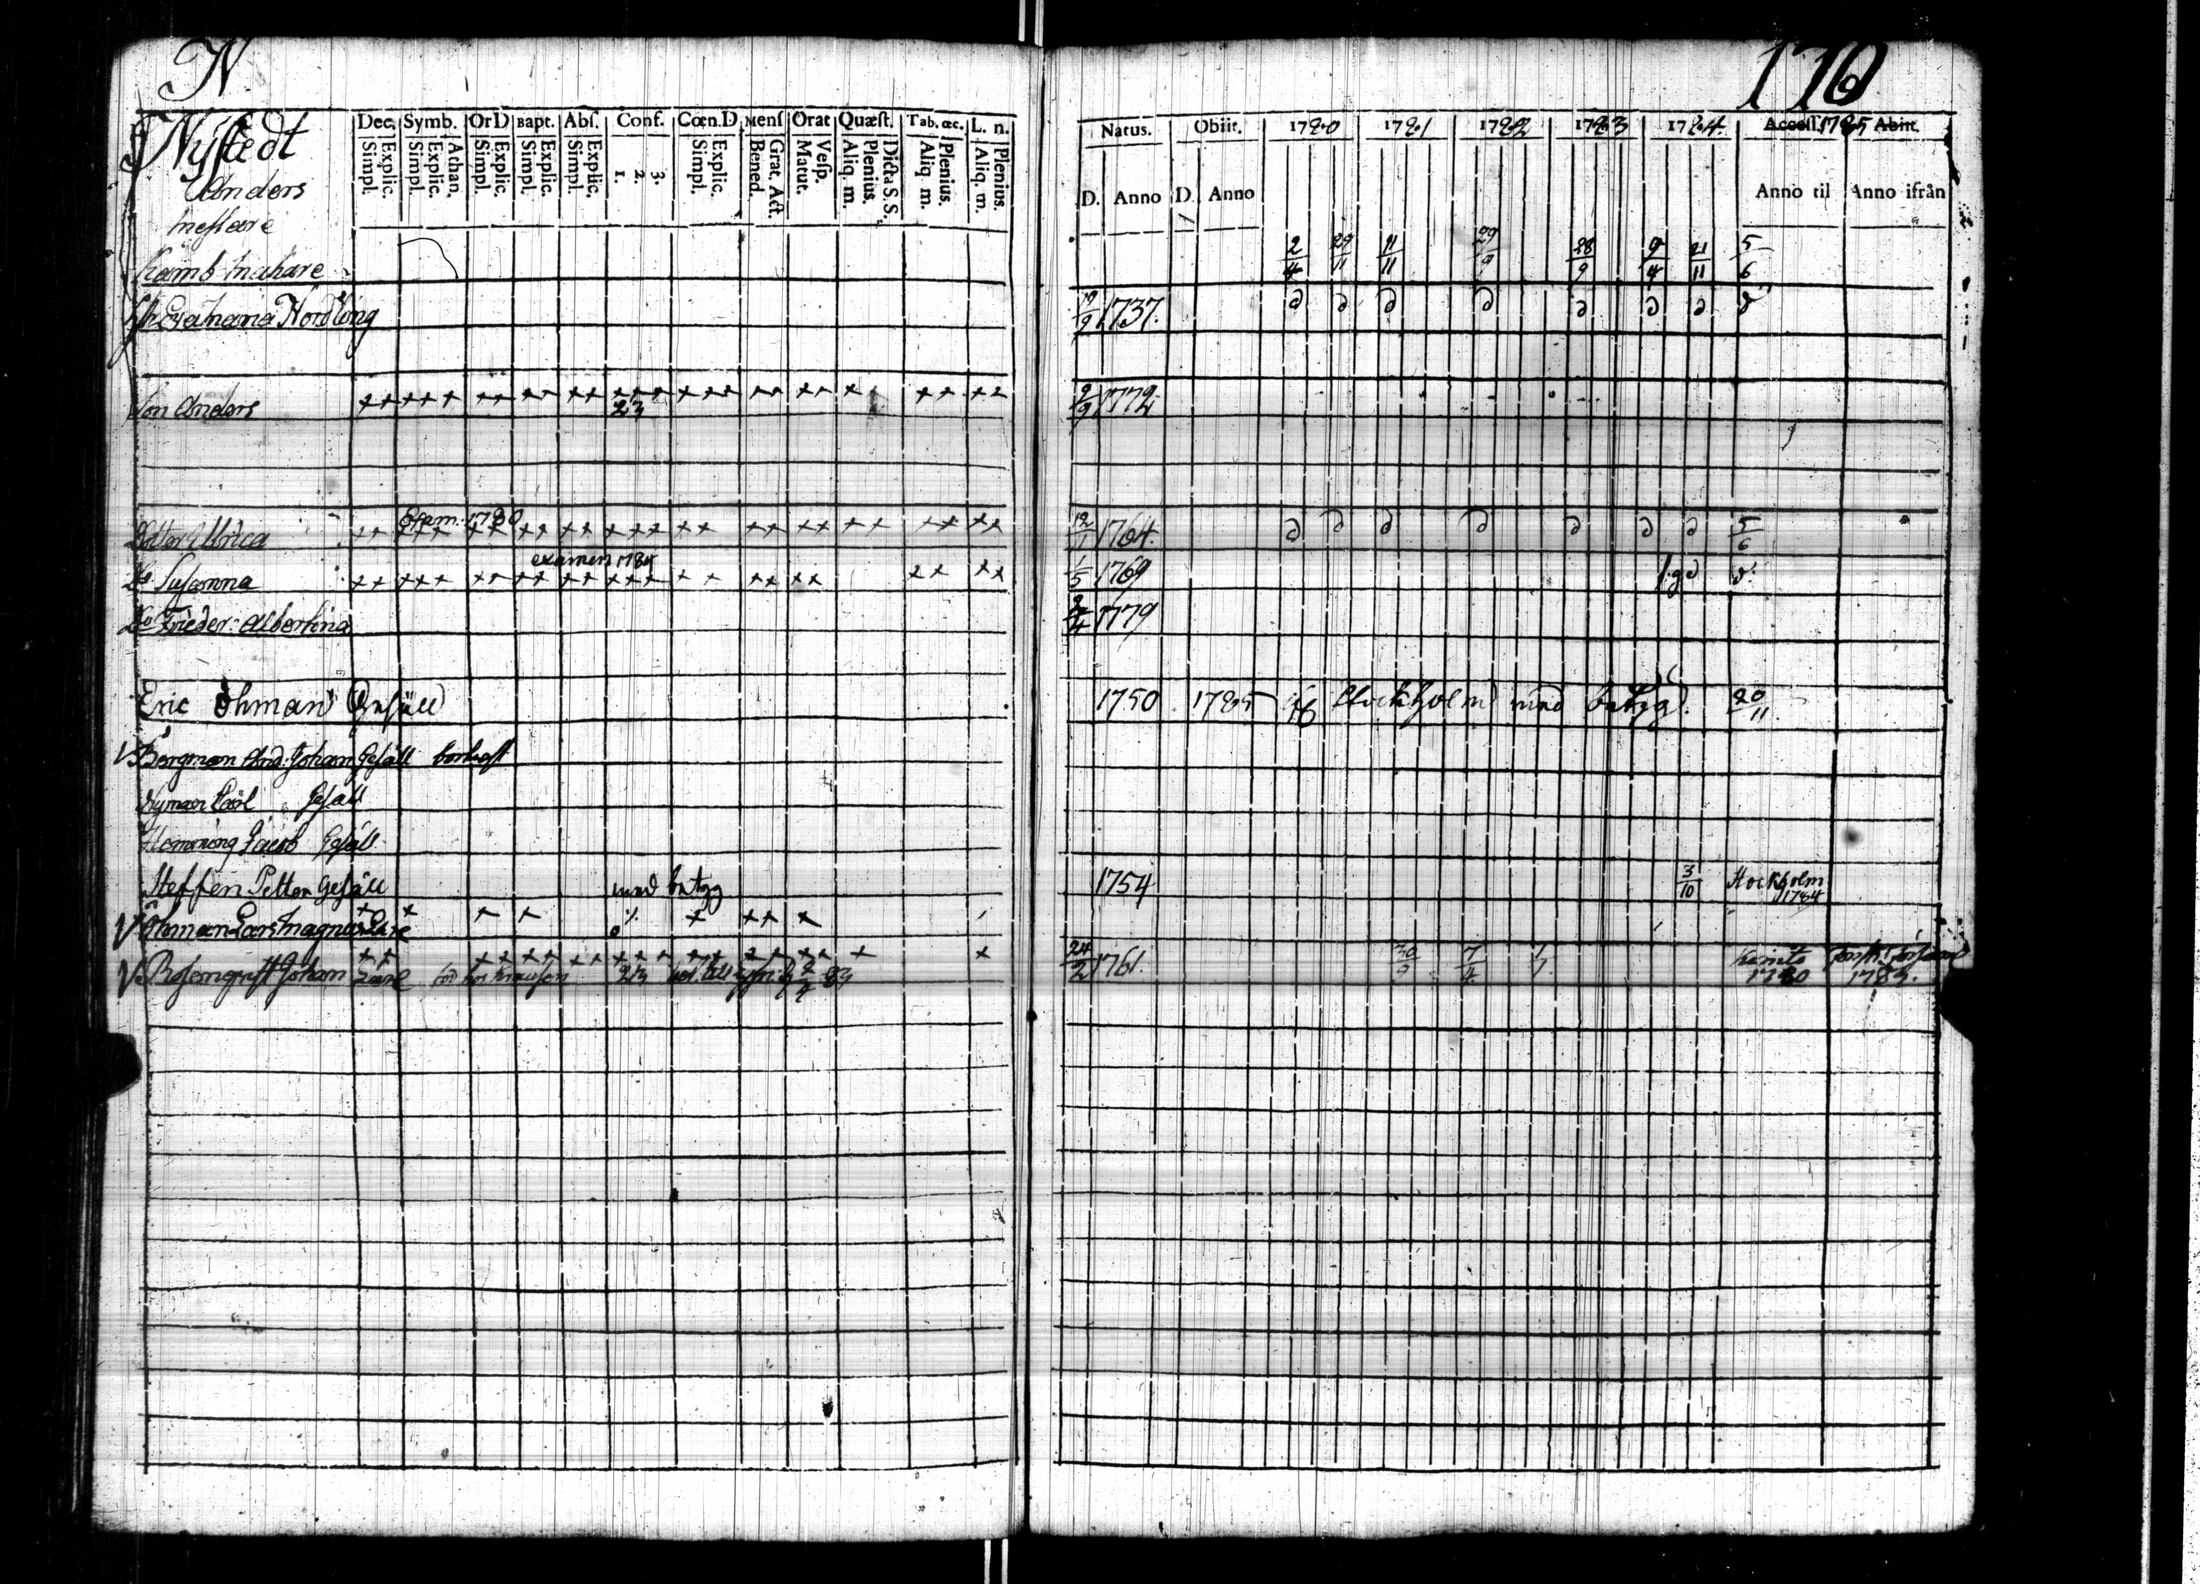 N
170
Dec. Symb. Or D Bapt. Abs. Conf. Cœn. D Mens Orat Quæst. Tab. œc. L. n.
Simpl. Explic. Simpl. Explic. Athan. Simpl. Explic. Simpl. Explic. Simpl. Explic. 1. 2. 3. Simpl. Explic. Bened. Grat. Act. Matut. Vesp. Aliq. m. Plenius. Dicta S.S. Aliq. m. Plenius. Aliq. m. Plenius.
Natus. Obiit. 1780 1781 1782 1783 1784 Access. 1785 Abiit.
D. Anno D. Anno Anno til Anno ifrån
Nystedt
Anders
mestare
Kambmakare 2/4 29/11 11/11 29/9 28/9 9/4 21/11 5/6
Nordling 1737. ∂ ∂ ∂ ∂ ∂ ∂ ∂ ∂
Son Anders 23 2/9 1772
Exam. 1780
Dotter Ulrica 12/1 1764. ∂ ∂ ∂ ∂ ∂ ∂ ∂ 5/6
examen 1784
Do Susanna 1/5 1769
Do Frieder: Albertina 1779
Eric Öhman Gesäll 1750 1785 Stockholm med betyg. 20/11
Bergman And: Johan Gesäll
Nyman Carl Gesäll
Henning Jacob Gesäll
Steffen Petter Gesäll med betyg 1754 3/10 Stockholm 1784
Öhman Lars Magnus Läre
Rosenqvist Johan Läre 23 24/2 1761. 7/4 Kimito
1780 1783.